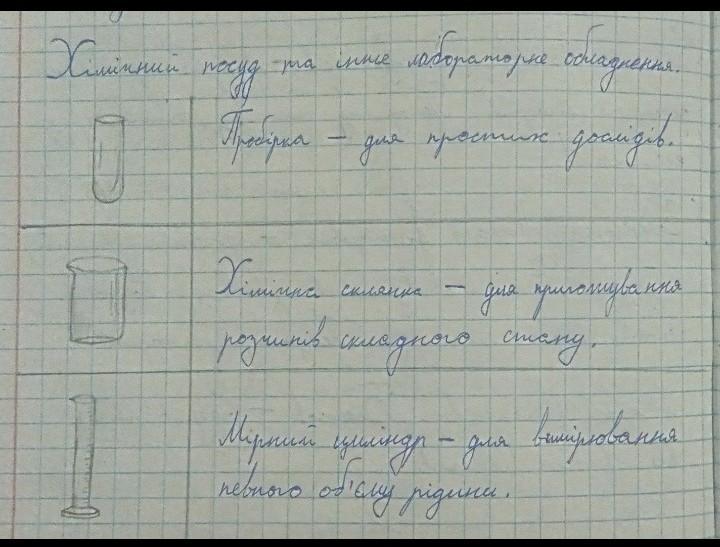 Хімічний посуд та інше лабораторне обладнення.
Пробірка – для простих дослідів.
Хімічна склянка – для приготування
розчинів складного стану.
Мірний циліндр – для вимірювання
певного об'єму рідини.